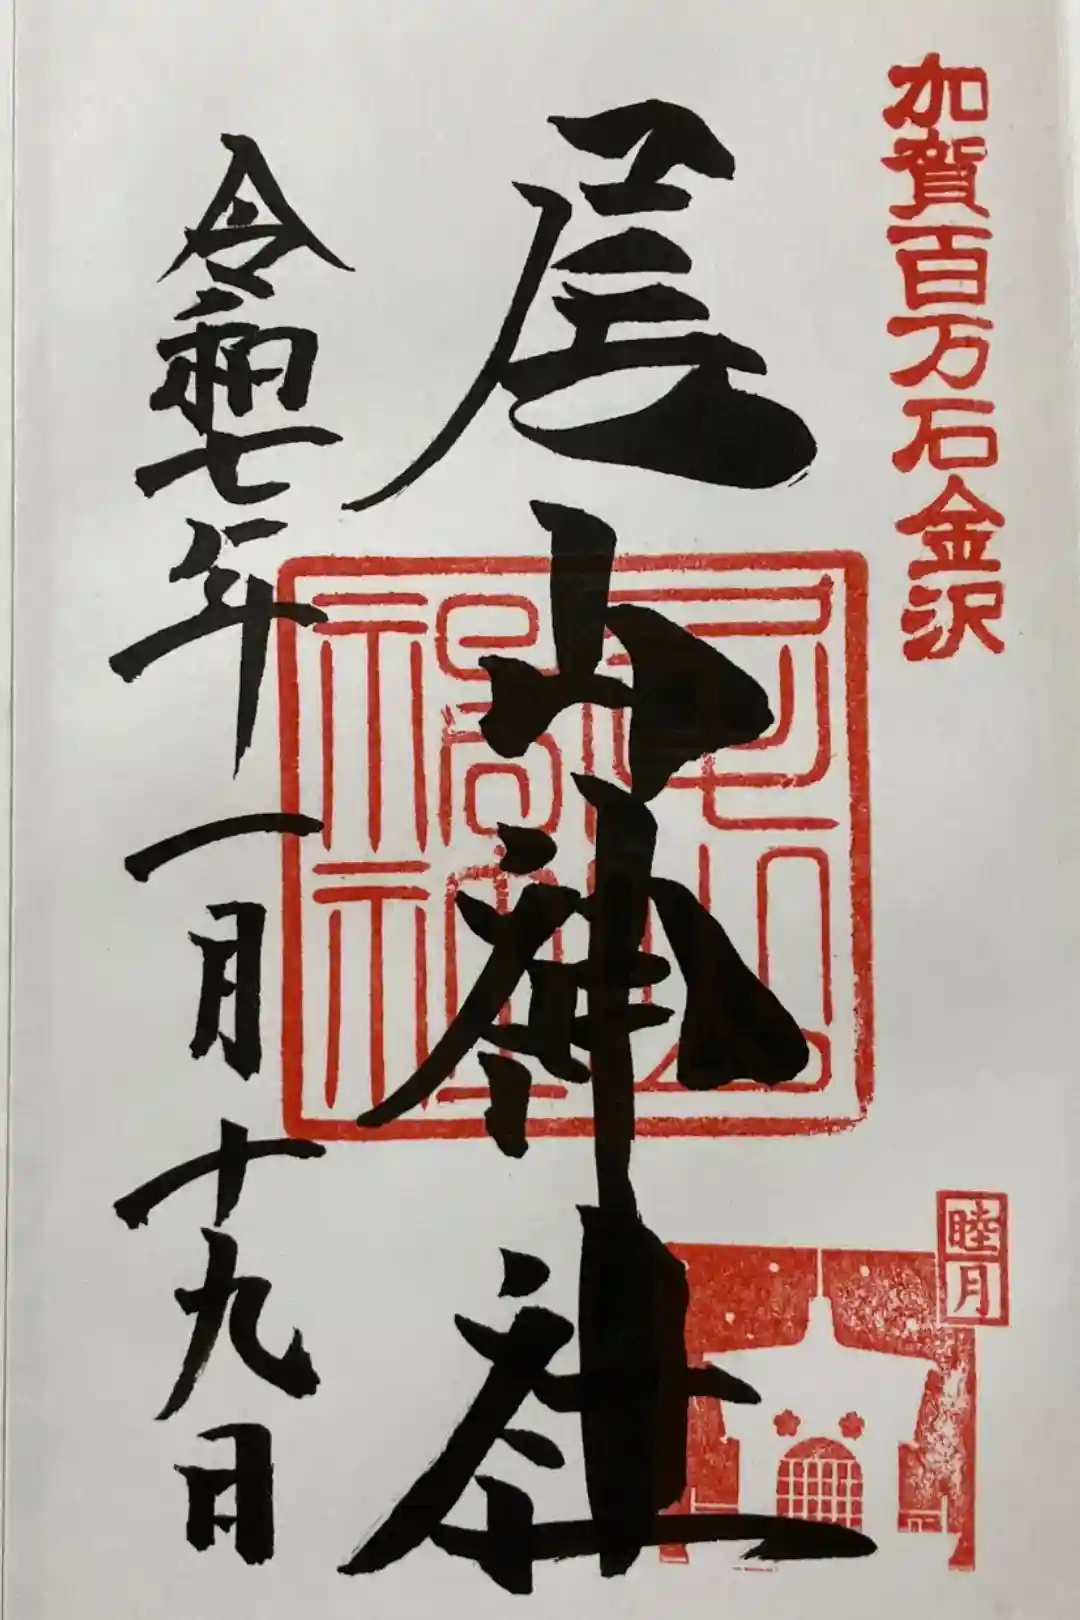 加賀百万石金沢
尾山神社
尾山神社
睦月
令和七年一月十九日